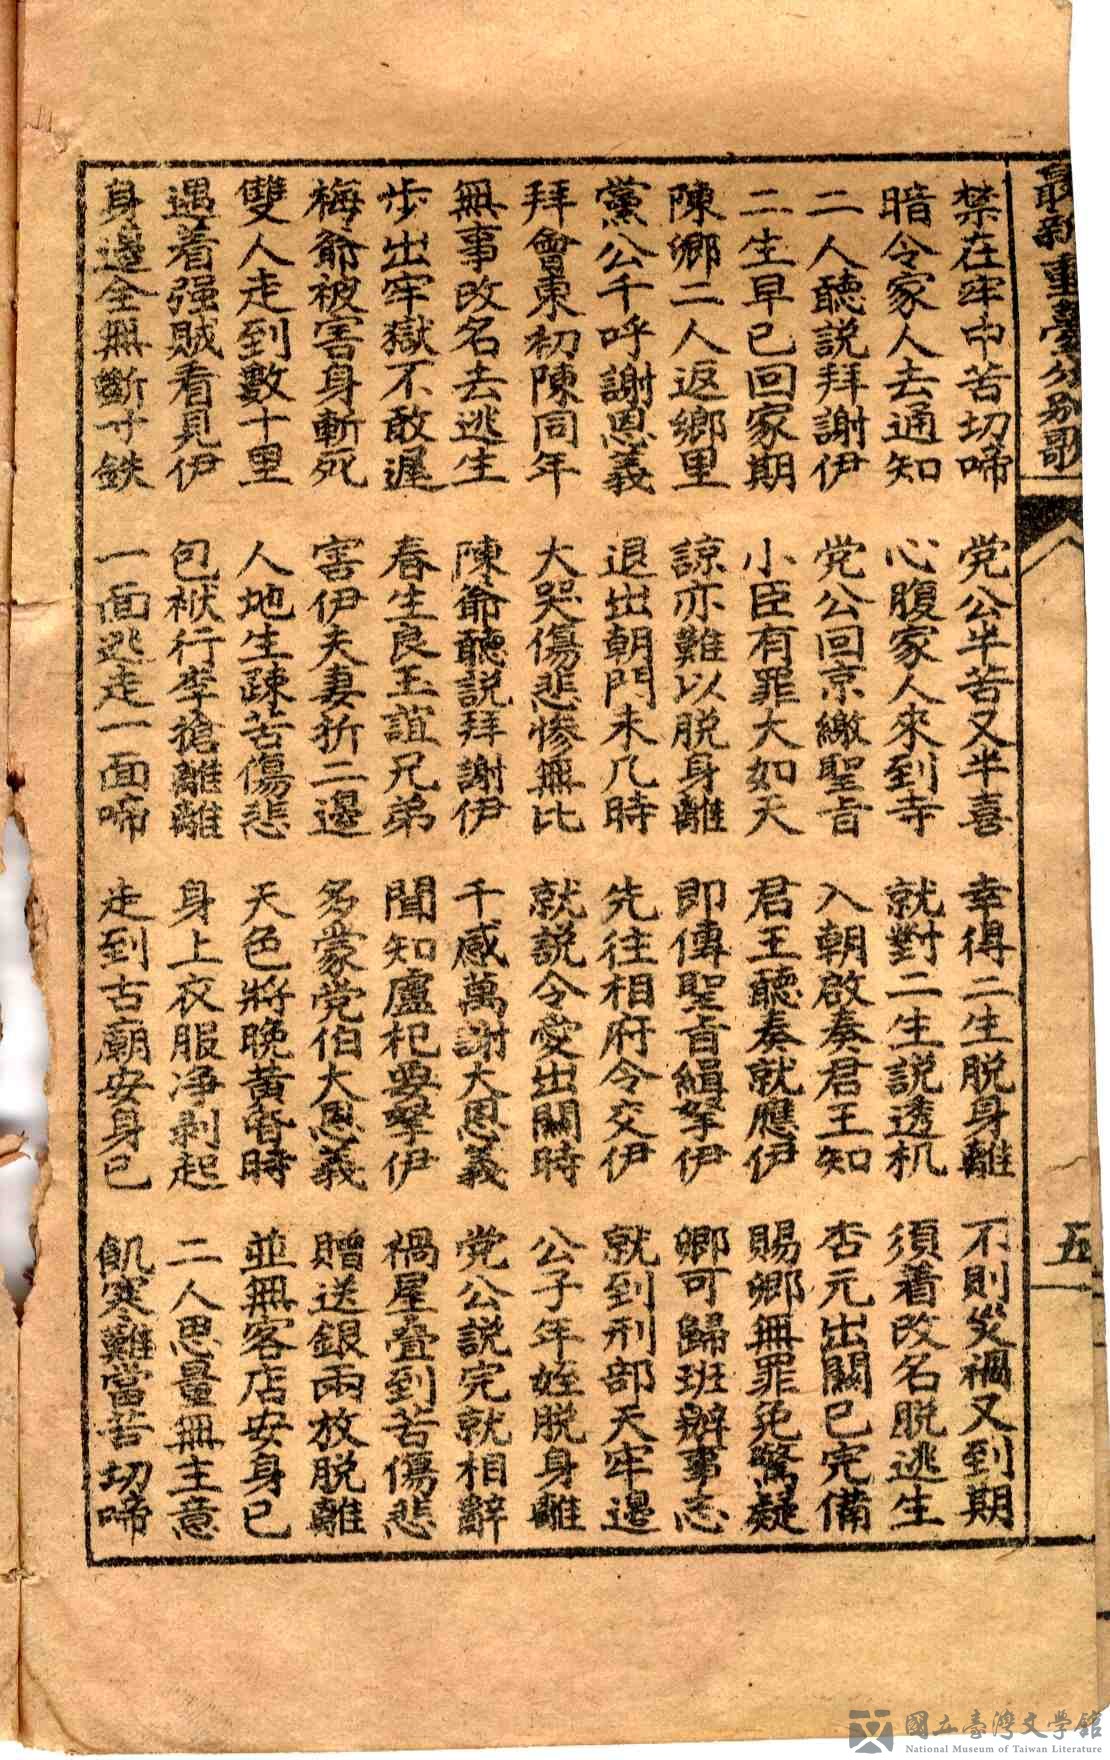 最新重臺分別歌
五
禁在牢中苦切啼 党公半苦又半喜 幸得二生脱身離 不則災禍又到期
暗令家人去通知 心腹家人來到寺 就對二生説透机 須着改名脱逃生
二人聽説拜謝伊 党公回京繳聖旨 入朝啟奏君王知 杏元出關已完備
二生早已回家期 小臣有罪大如天 君王聽奏就應伊 賜卿無罪免驚疑
陳鄉二人返鄉里 諒亦難以脱身離 即傳聖旨緝拏伊 卿可歸班辦事志
黨公千呼謝恩義 退出朝門未几時 先往相府令交伊 就到刑部天牢邊
拜會東初陳同年 大哭傷悲惨無比 就説令愛出關時 公子年姪脱身離
無事改名去逃生 陳爺聽説拜謝伊 千感萬謝大恩義 党公説完就相辭
步出牢獄不敢遲 春生良玉誼兄弟 聞知盧杞要拏伊 禍星疊到苦傷悲
梅爺被害身斬死 害伊夫妻折二邊 多蒙党伯大恩義 贈送銀兩放脱離
雙人走到數十里 人地生疎苦傷悲 天色將晚黃昏時 並無客店安身已
遇着强賊看見伊 包袱行李搶離離 身上衣服净剥起 二人思量無主意
身邊全無斷寸鉄 一面逃走一面啼 走到古廟安身已 飢寒難當苦切啼
國立臺灣文學館
National Museum of Taiwan Literature